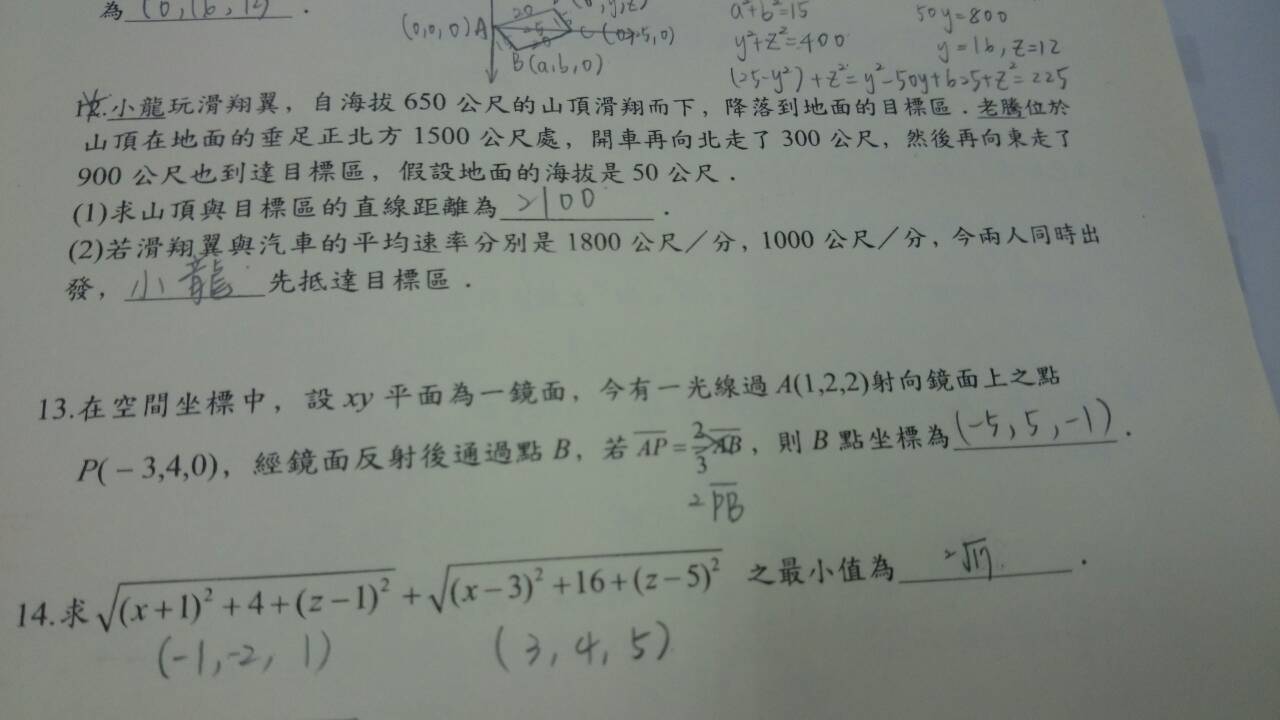 為 (0,16,12) .
(0,0,0) A
20
25
20
C (0,25,0)
B(a,b,0)
y²+z²=400
50y=800
y=16, z=12
(25-y²)+z²=y²-50y+625+z²=225
12.小龍玩滑翔翼，自海拔 650 公尺的山頂滑翔而下，降落到地面的目標區．老騰位於
山頂在地面的垂足正北方 1500 公尺處，開車再向北走了 300 公尺，然後再向東走了
900 公尺也到達目標區，假設地面的海拔是 50 公尺．
(1)求山頂與目標區的直線距離為 2100 ．
(2)若滑翔翼與汽車的平均速率分別是 1800 公尺／分，1000 公尺／分，今兩人同時出
發， 小龍 先抵達目標區．
13.在空間坐標中，設 xy 平面為一鏡面，今有一光線過 A(1,2,2)射向鏡面上之點
P(－3,4,0)，經鏡面反射後通過點 B，若 AP = 2/3 AB，則 B 點坐標為 (-5, 5, -1) ．
2PB
14.求 √((x+1)²+4+(z−1)²) + √((x−3)²+16+(z−5)²) 之最小值為 2√17 ．
(-1,-2, 1)
(3, 4, 5)